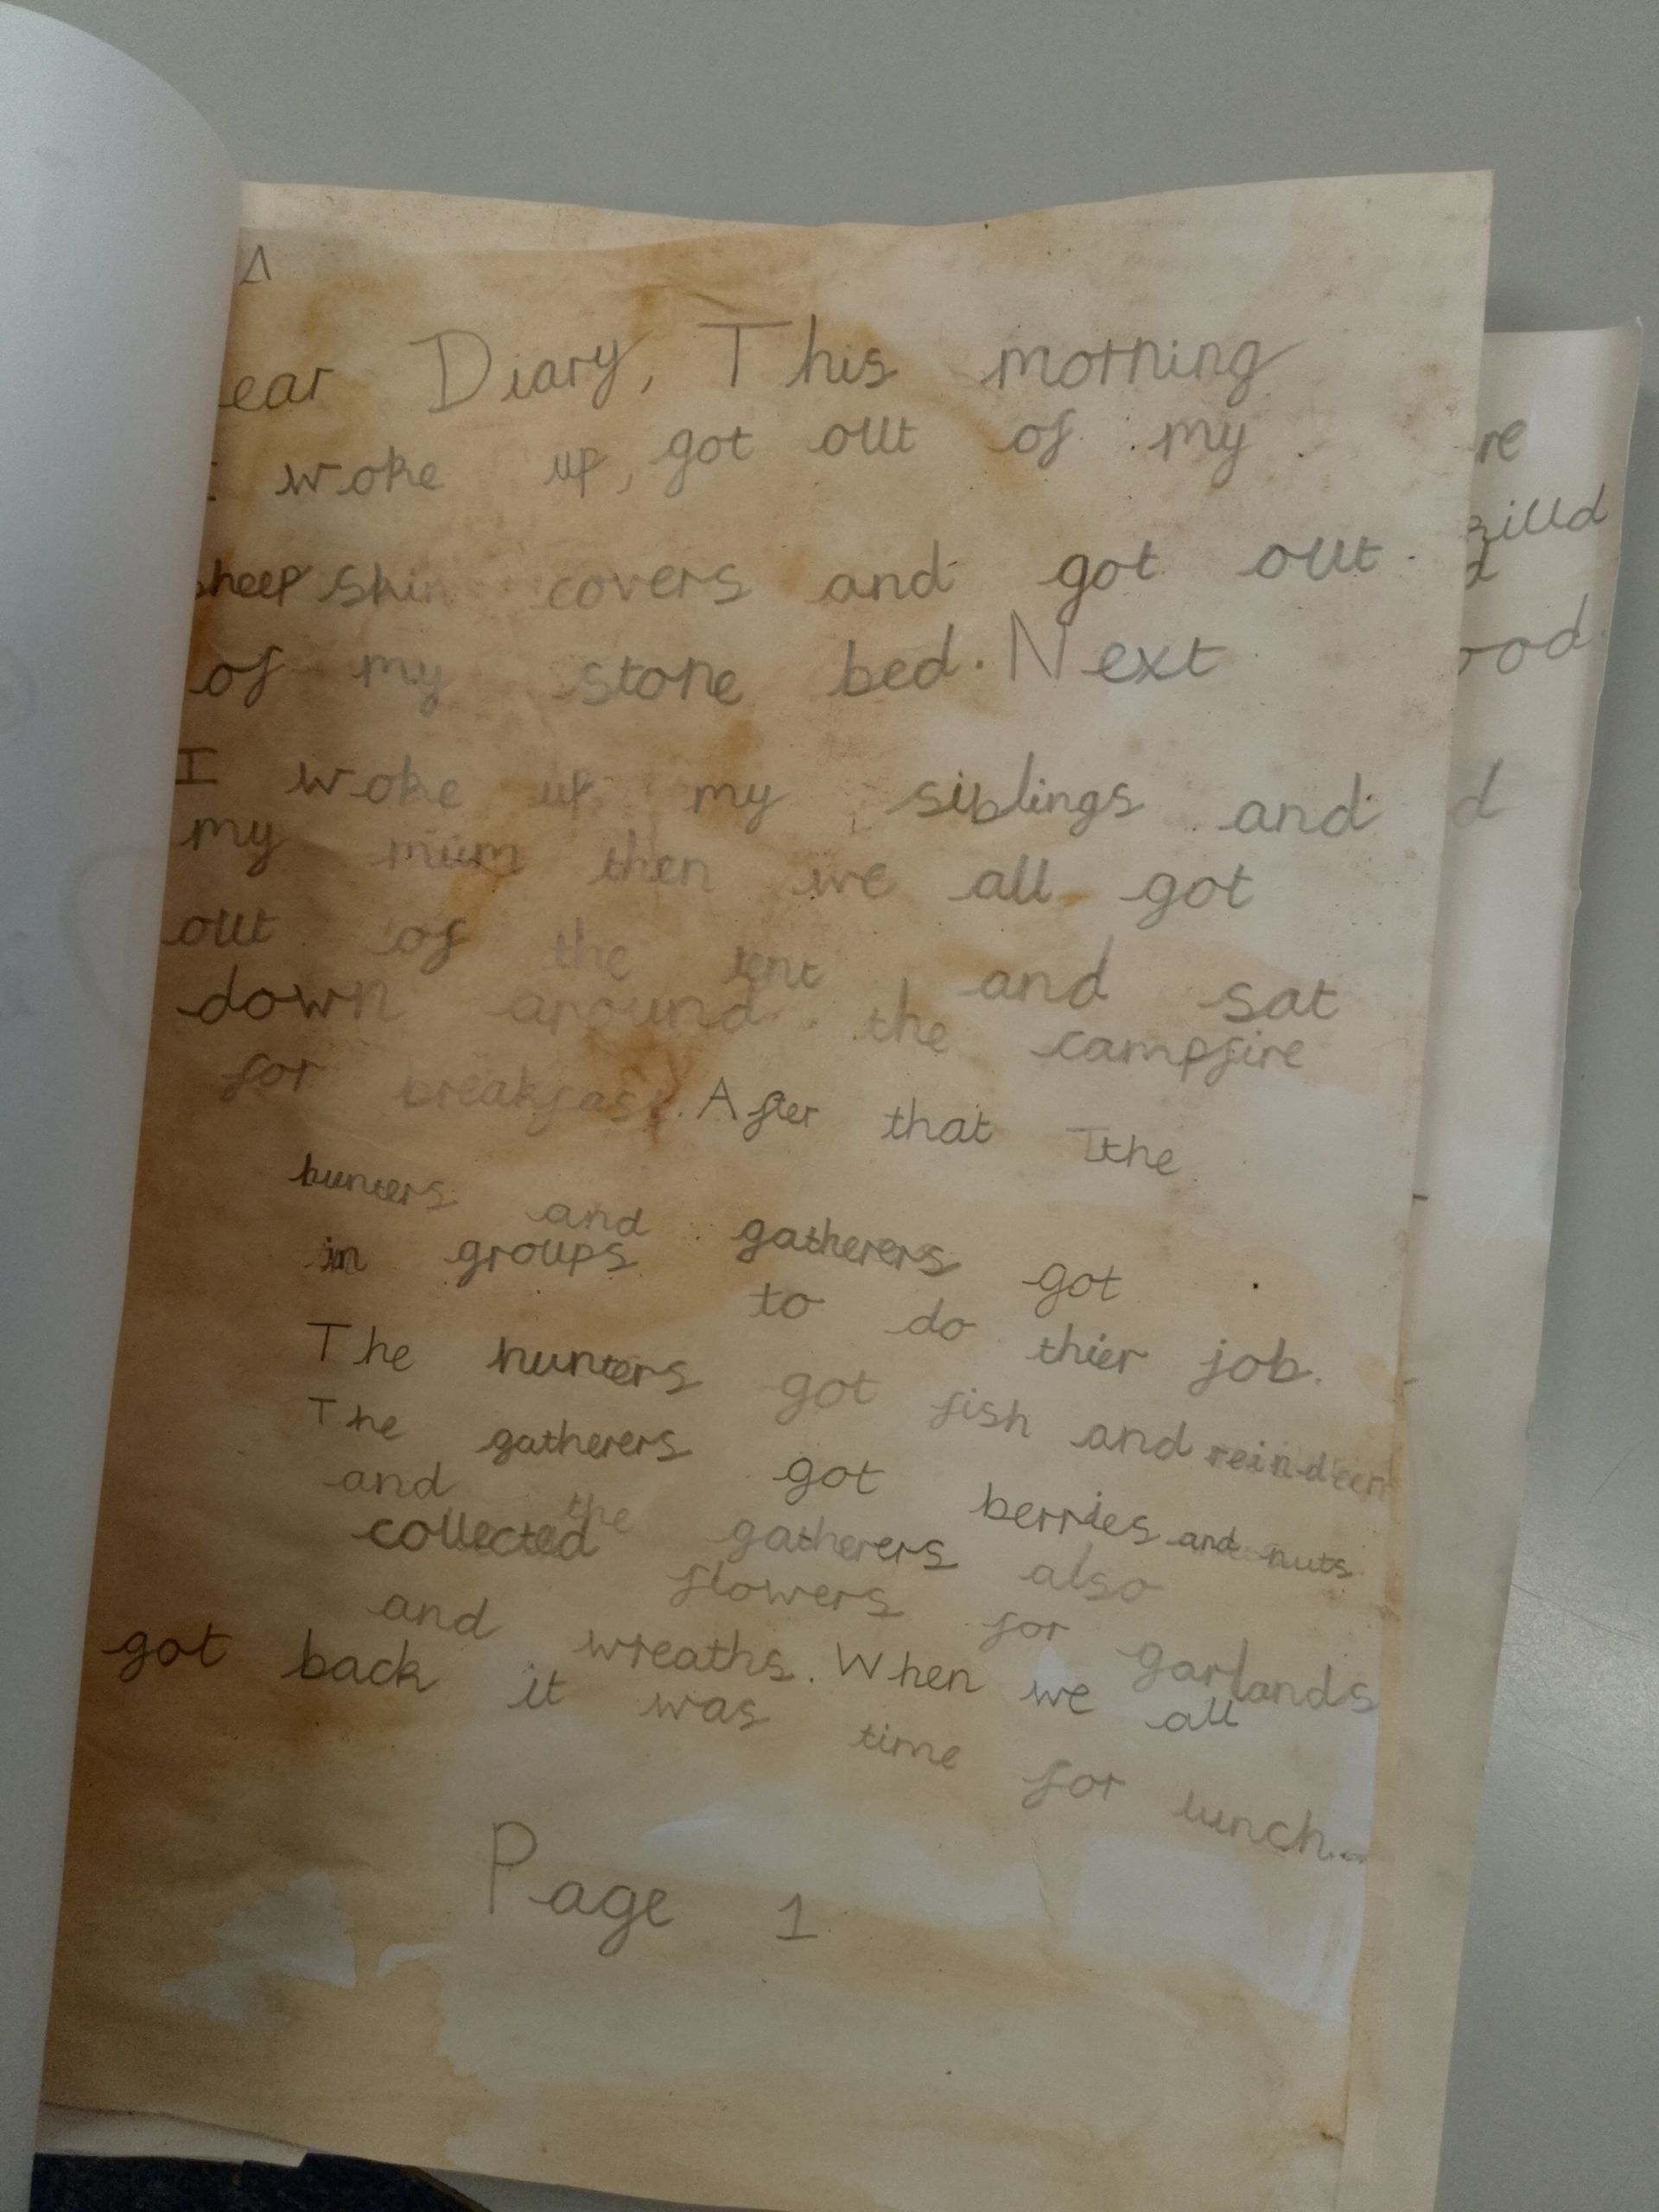 Δ
ear Diary, This morning
I woke up, got out of my
sheep skin covers and got out
of my stone bed. Next
I woke up my siblings and
my mum then we all got
out of the tent and sat
down around the campfire
for breakfast. After that Tthe
hunters and gatherers got
in groups to do thier job.
The hunters got fish and reindeer
The gatherers got berries and nuts
and the gatherers also
collected flowers for garlands
and wreaths. When we all
got back it was time for lunch...
Page 1
re
killd
d
ood
d